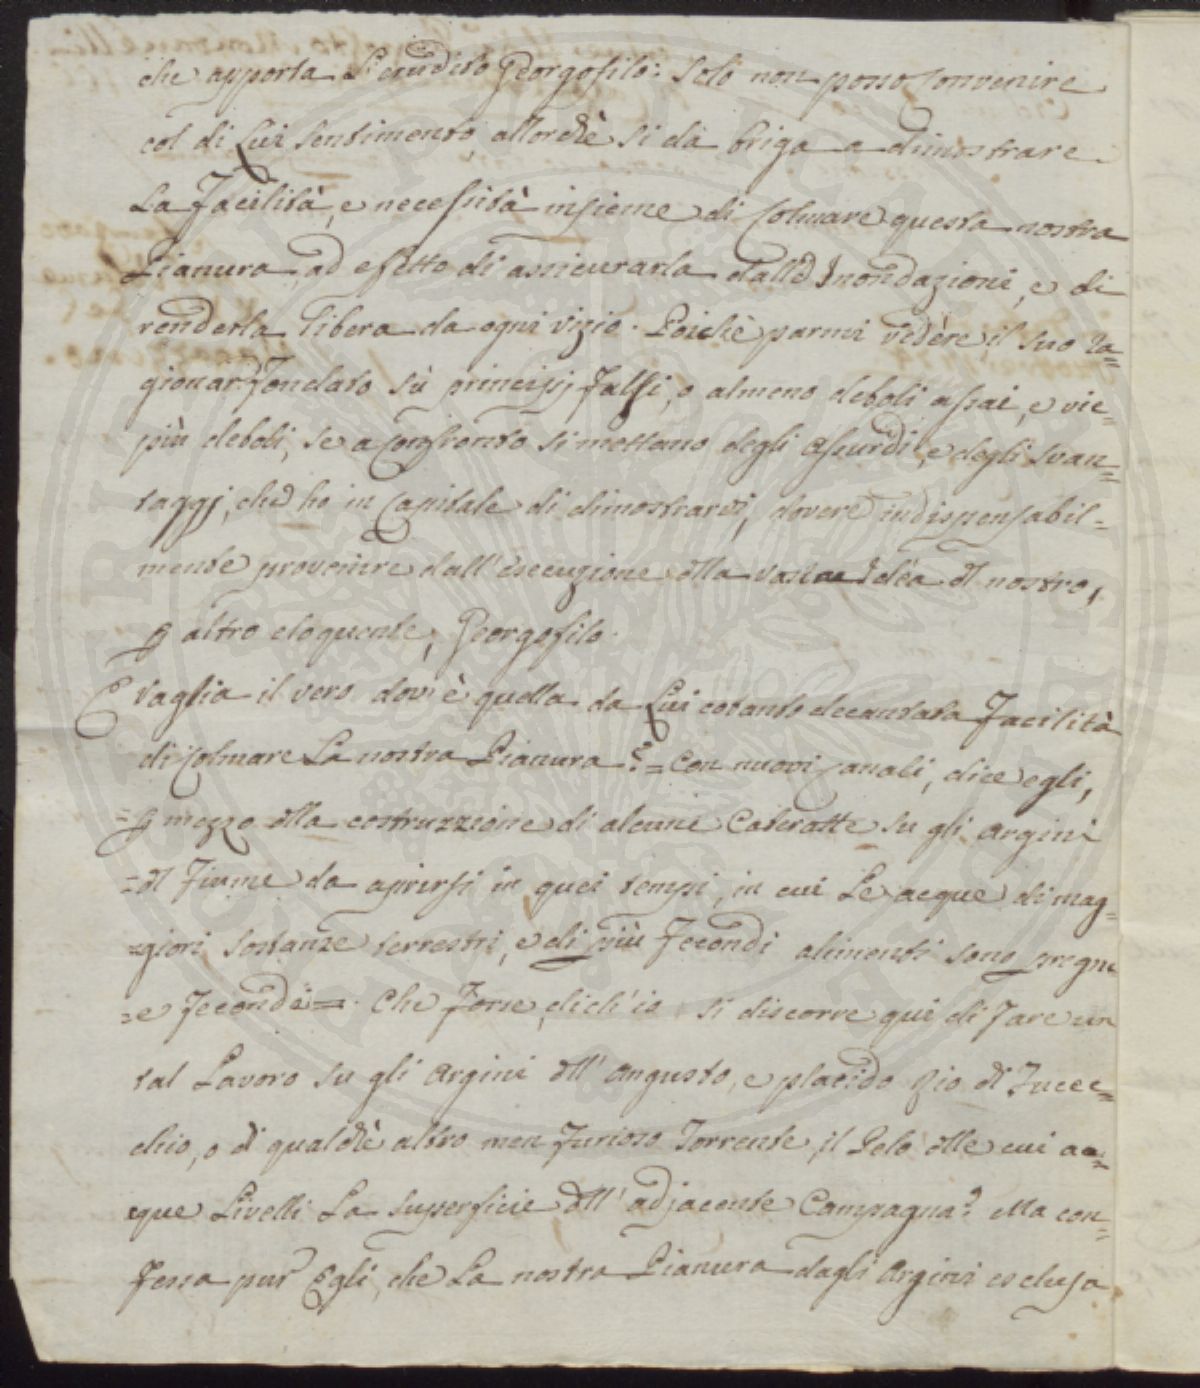 che apporta l'erudito Georgofilo: solo non posso convenire
col di Lui sentimento, allorchè si dà briga a dimostrare
La Facilità, e necessità insieme di Colmare questa nostra
Pianura, ad effetto di assicurarla dalle Inondazioni, e di
renderla libera da ogni vizio. Poichè parmi vedère il suo ra=
gionar fondato sù principj falsi, o almeno deboli assai, e vie=
più deboli, se a Confronto si mettano degli assurdi, e degli svan=
taggj, che ho in Capitale di dimostrarvi, dovere indispensabil=
mente provenire dall'esecuzione dlla vasta Idéa dl nostro,
p altro eloquente, Georgofilo.
E vaglia il vero dov'è quella da Lui cotanto decantata Facilità
di Colmare La nostra Pianura? = Con nuovi Canali, dice egli,
= p mezzo dlla costruzzione di alcune Cateratte su gli argini
= dl Fiume da aprirsi in quei tempi, in cui Le acque di mag=
= giori sostanze terrestri, e di più fecondi alimenti sono pregne
= e feconde =. Che forse, dich'io, si discorre quì di fare un
tal Lavoro su gli Argini dll'angusto, e placido Rio di Fucec=
chio, o di qualchè altro men furioso Torrente, il Pelo dlle cui ac=
que Livelli La superficie dll'adjacente Campagna? Ma con=
fessa pur Egli, che La nostra Pianura dagli Argini esclusa